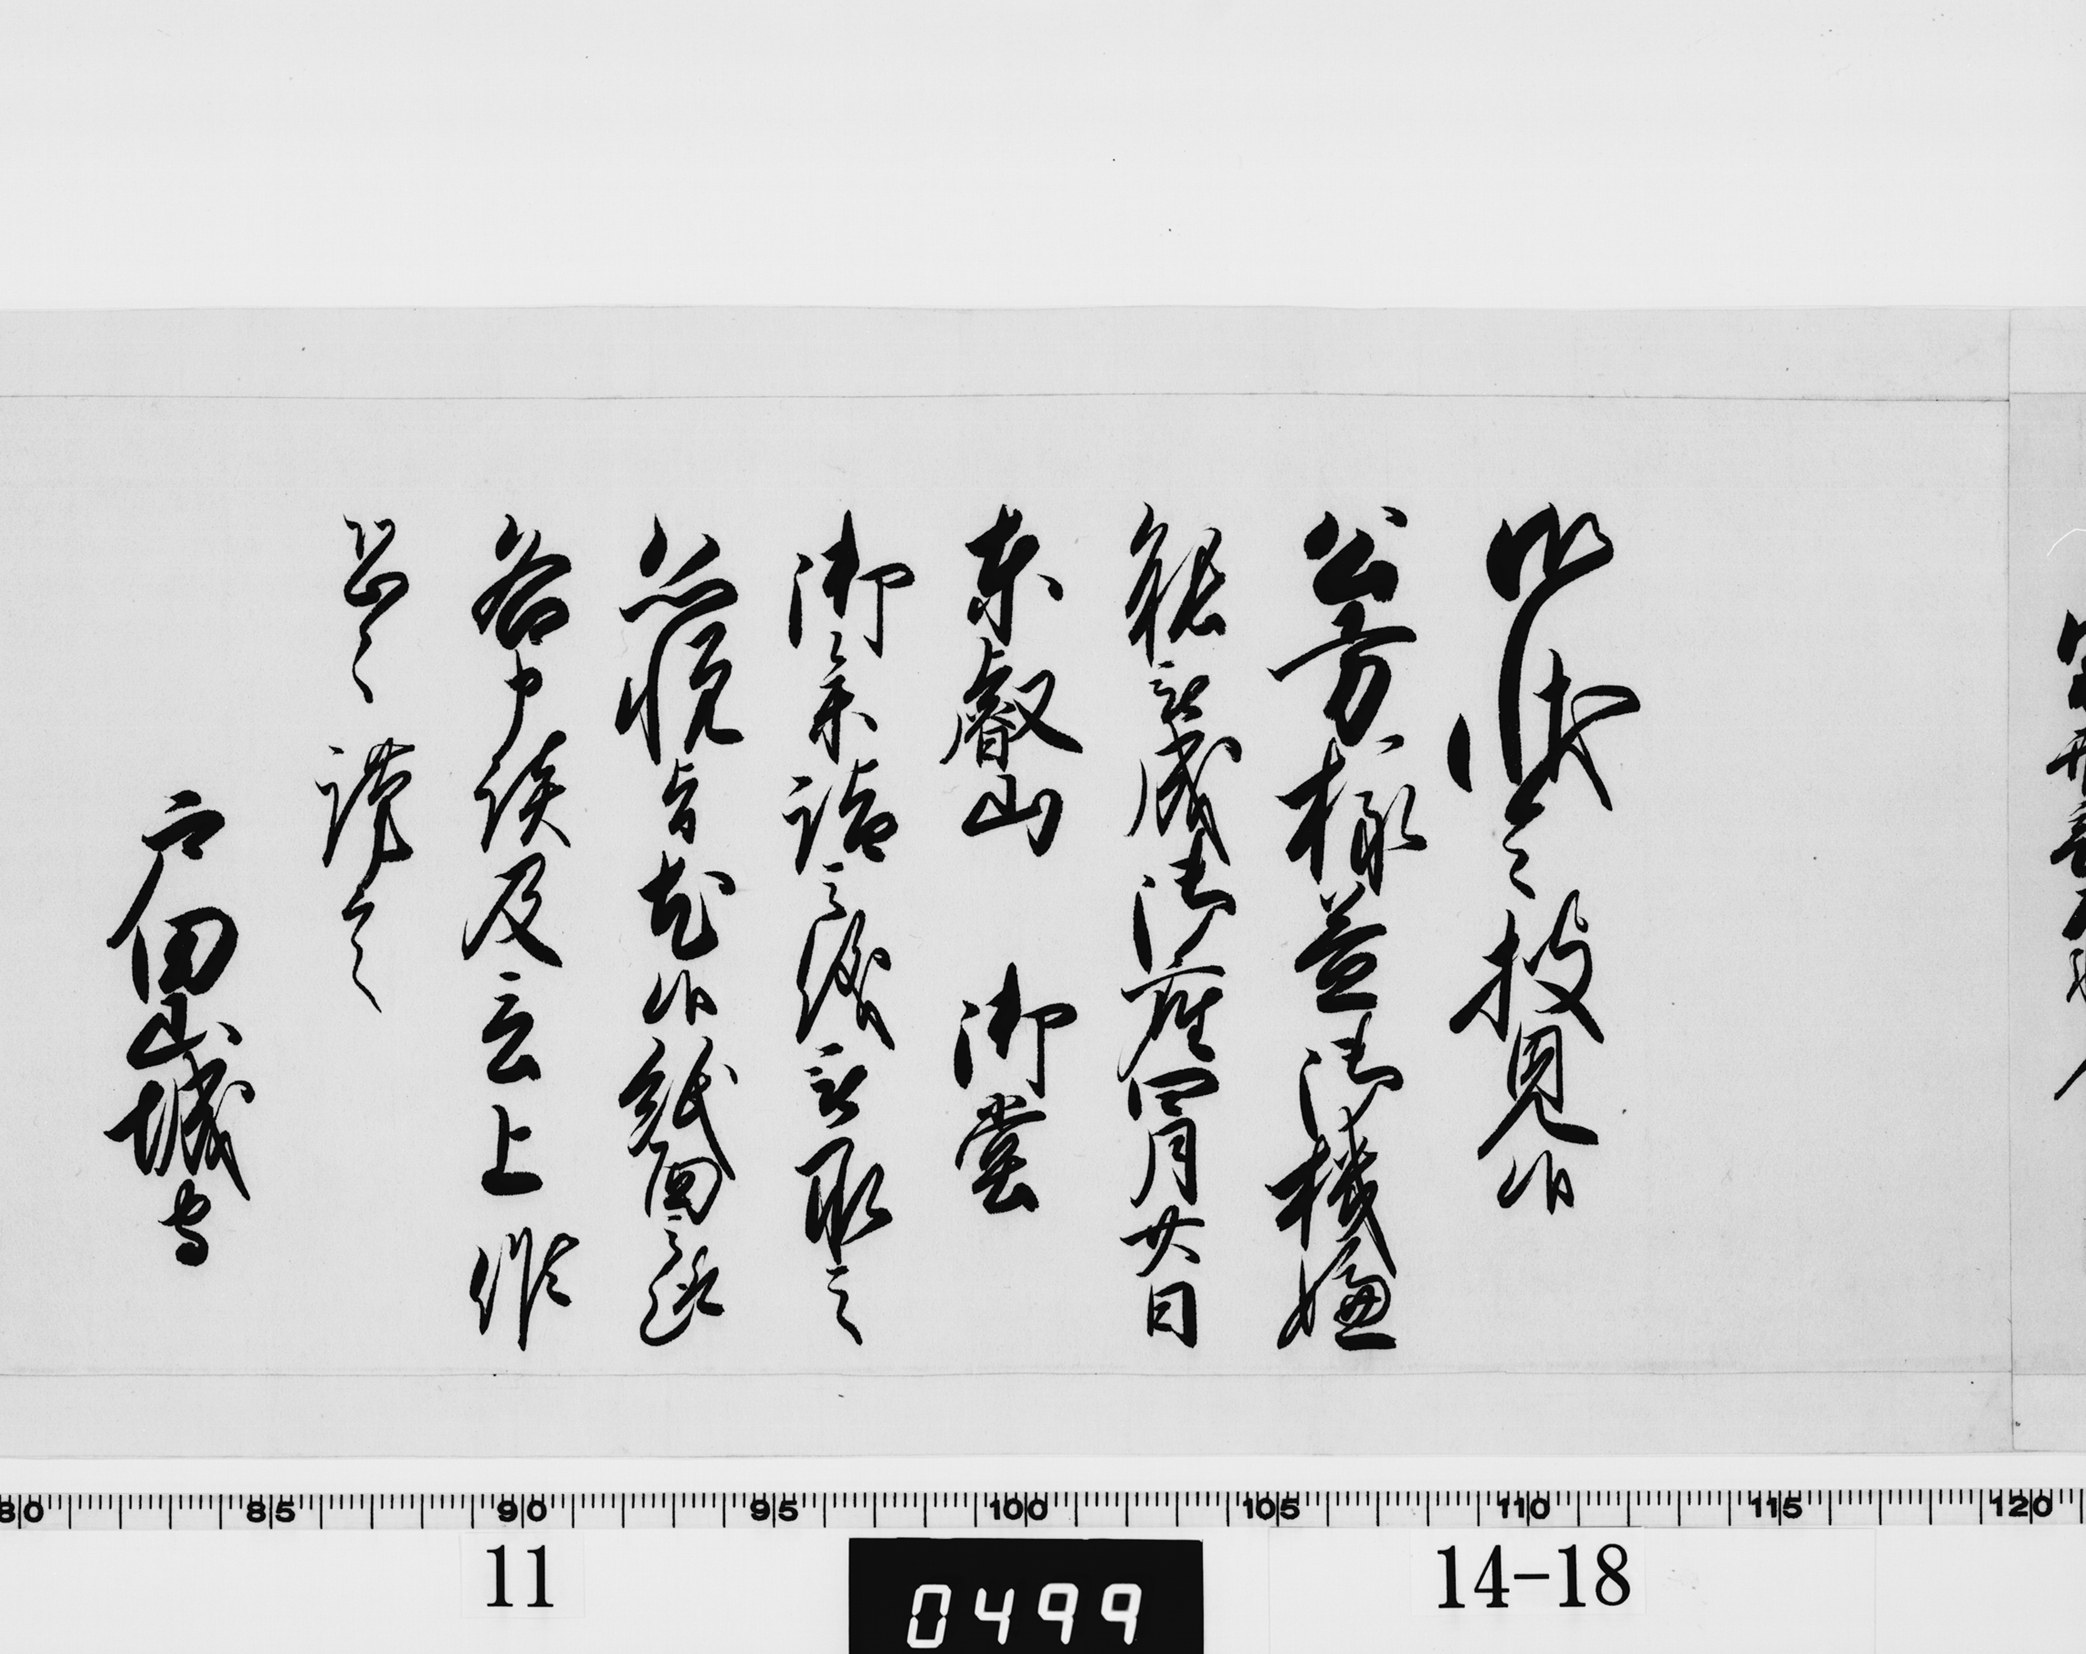 御状令披見候
公方様益御機嫌
能被成御座四月廿日
東叡山 御堂
御参詣之儀被承之
恐悦旨尤候紙面之趣
各申談及言上候
恐々謹言
戸田山城守
80 85 90 95 100 105 110 115 120
11
0499
14-18